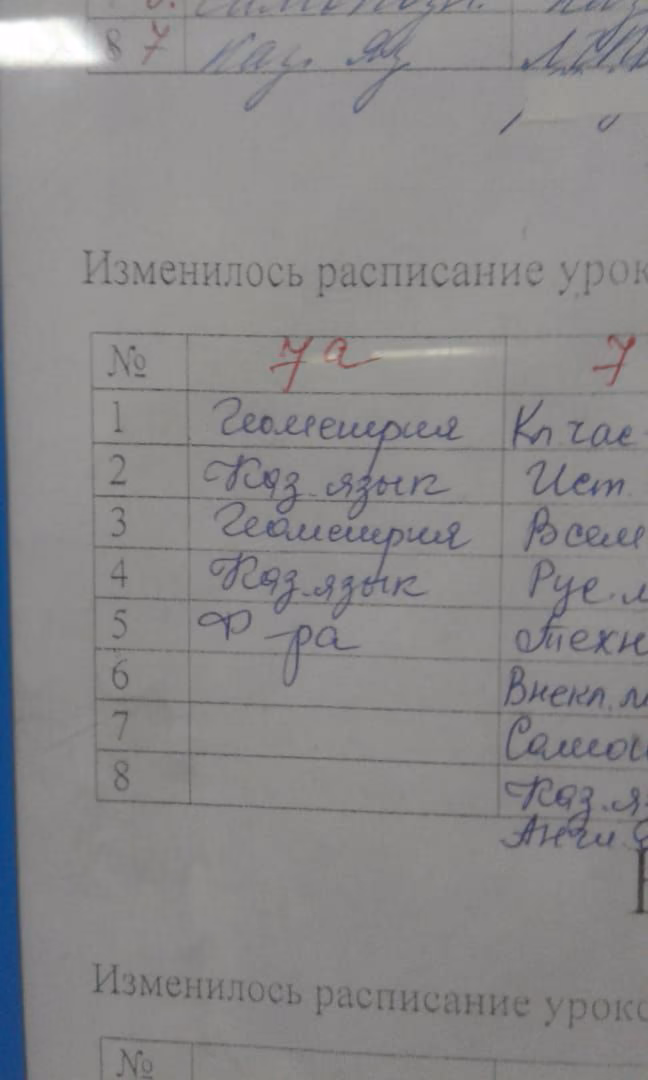 8 7 Каз. яз
Изменилось расписание урок
№ 7 а 7
1 Геометрия Кл час
2 Каз язык Ист.
3 Геометрия Всем
4 Каз.язык Рус. л
5 Ф-ра Техн
6 Внекл. л
7 Самоп
8 Каз. я
Англ
Изменилось расписание уроко
№